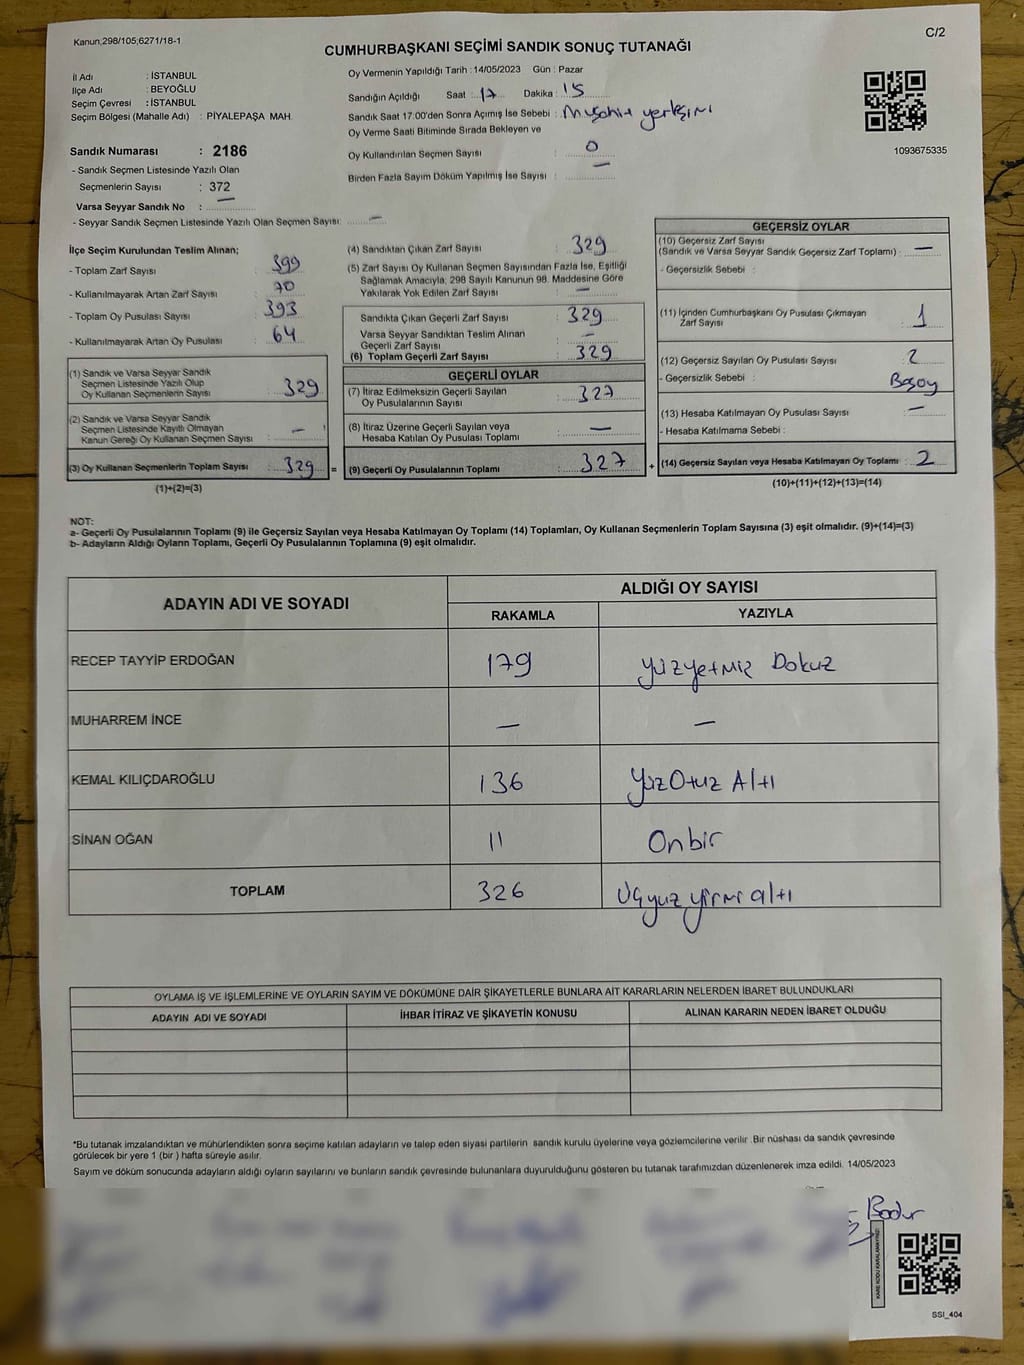 Kanun;298/105;6271/18-1
C/2
CUMHURBAŞKANI SEÇİMİ SANDIK SONUÇ TUTANAĞI
İl Adı : İSTANBUL
İlçe Adı : BEYOĞLU
Seçim Çevresi : İSTANBUL
Seçim Bölgesi (Mahalle Adı) : PİYALEPAŞA MAH.
Sandık Numarası : 2186
- Sandık Seçmen Listesinde Yazılı Olan
Seçmenlerin Sayısı : 372
Varsa Seyyar Sandık No : —
- Seyyar Sandık Seçmen Listesinde Yazılı Olan Seçmen Sayısı: —
Oy Vermenin Yapıldığı Tarih :14/05/2023 Gün : Pazar
Sandığın Açıldığı Saat : 17 Dakika : 15
Sandık Saat 17:00'den Sonra Açımış İse Sebebi : Müşahit yerleşimi
Oy Verme Saati Bitiminde Sırada Bekleyen ve
Oy Kullandırılan Seçmen Sayısı : 0
Birden Fazla Sayım Döküm Yapılmış İse Sayısı : —
1093675335
İlçe Seçim Kurulundan Teslim Alınan;
- Toplam Zarf Sayısı : 399
- Kullanılmayarak Artan Zarf Sayısı : 70
- Toplam Oy Pusulası Sayısı : 393
- Kullanılmayarak Artan Oy Pusulası : 64
(1) Sandık ve Varsa Seyyar Sandık
Seçmen Listesinde Yazılı Olup
Oy Kullanan Seçmenlerin Sayısı : 329
(2) Sandık ve Varsa Seyyar Sandık
Seçmen Listesinde Kayıtlı Olmayan
Kanun Gereği Oy Kullanan Seçmen Sayısı : —
(3) Oy Kullanan Seçmenlerin Toplam Sayısı : 329 =
(1)+(2)=(3)
(4) Sandıktan Çıkan Zarf Sayısı : 329
(5) Zarf Sayısı Oy Kullanan Seçmen Sayısından Fazla İse, Eşitliği
Sağlamak Amacıyla, 298 Sayılı Kanunun 98. Maddesine Göre
Yakılarak Yok Edilen Zarf Sayısı : —
Sandıkta Çıkan Geçerli Zarf Sayısı : 329
Varsa Seyyar Sandıktan Teslim Alınan
Geçerli Zarf Sayısı : —
(6) Toplam Geçerli Zarf Sayısı : 329
GEÇERLİ OYLAR
(7) İtiraz Edilmeksizin Geçerli Sayılan
Oy Pusulalarının Sayısı : 327
(8) İtiraz Üzerine Geçerli Sayılan veya
Hesaba Katılan Oy Pusulası Toplamı : —
(9) Geçerli Oy Pusulalarının Toplamı : 327 +
GEÇERSİZ OYLAR
(10) Geçersiz Zarf Sayısı
(Sandık ve Varsa Seyyar Sandık Geçersiz Zarf Toplamı) : —
- Geçersizlik Sebebi :
(11) İçinden Cumhurbaşkanı Oy Pusulası Çıkmayan
Zarf Sayısı : 1
(12) Geçersiz Sayılan Oy Pusulası Sayısı : 2
- Geçersizlik Sebebi :
(13) Hesaba Katılmayan Oy Pusulası Sayısı : —
- Hesaba Katılmama Sebebi :
(14) Geçersiz Sayılan veya Hesaba Katılmayan Oy Toplamı : 2
(10)+(11)+(12)+(13)=(14)
NOT:
a- Geçerli Oy Pusulalarının Toplamı (9) ile Geçersiz Sayılan veya Hesaba Katılmayan Oy Toplamı (14) Toplamları, Oy Kullanan Seçmenlerin Toplam Sayısına (3) eşit olmalıdır. (9)+(14)=(3)
b- Adayların Aldığı Oyların Toplamı, Geçerli Oy Pusulalarının Toplamına (9) eşit olmalıdır.
ADAYIN ADI VE SOYADI
ALDIĞI OY SAYISI
RAKAMLA YAZIYLA
RECEP TAYYİP ERDOĞAN 179 Yüzyetmiş Dokuz
MUHARREM İNCE — —
KEMAL KILIÇDAROĞLU 136 YüzOtuz Altı
SİNAN OĞAN 11 Onbir
TOPLAM 326 Üçyüz yirmi altı
OYLAMA İŞ VE İŞLEMLERİNE VE OYLARIN SAYIM VE DÖKÜMÜNE DAİR ŞİKAYETLERLE BUNLARA AİT KARARLARIN NELERDEN İBARET BULUNDUKLARI
ADAYIN ADI VE SOYADI İHBAR İTİRAZ VE ŞİKAYETİN KONUSU ALINAN KARARIN NEDEN İBARET OLDUĞU
*Bu tutanak imzalandıktan ve mühürlendikten sonra seçime katılan adayların ve talep eden siyasi partilerin sandık kurulu üyelerine veya gözlemcilerine verilir .Bir nüshası da sandık çevresinde
görülecek bir yere 1 (bir ) hafta süreyle asılır.
Sayım ve döküm sonucunda adayların aldığı oyların sayılarını ve bunların sandık çevresinde bulunanlara duyurulduğunu gösteren bu tutanak tarafımızdan düzenlenerek imza edildi. 14/05/2023
KARE KODU KARALAMAYINIZ!
SSI_404